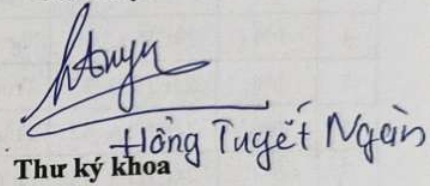 Hồng Tuyết Ngân
Thư ký khoa